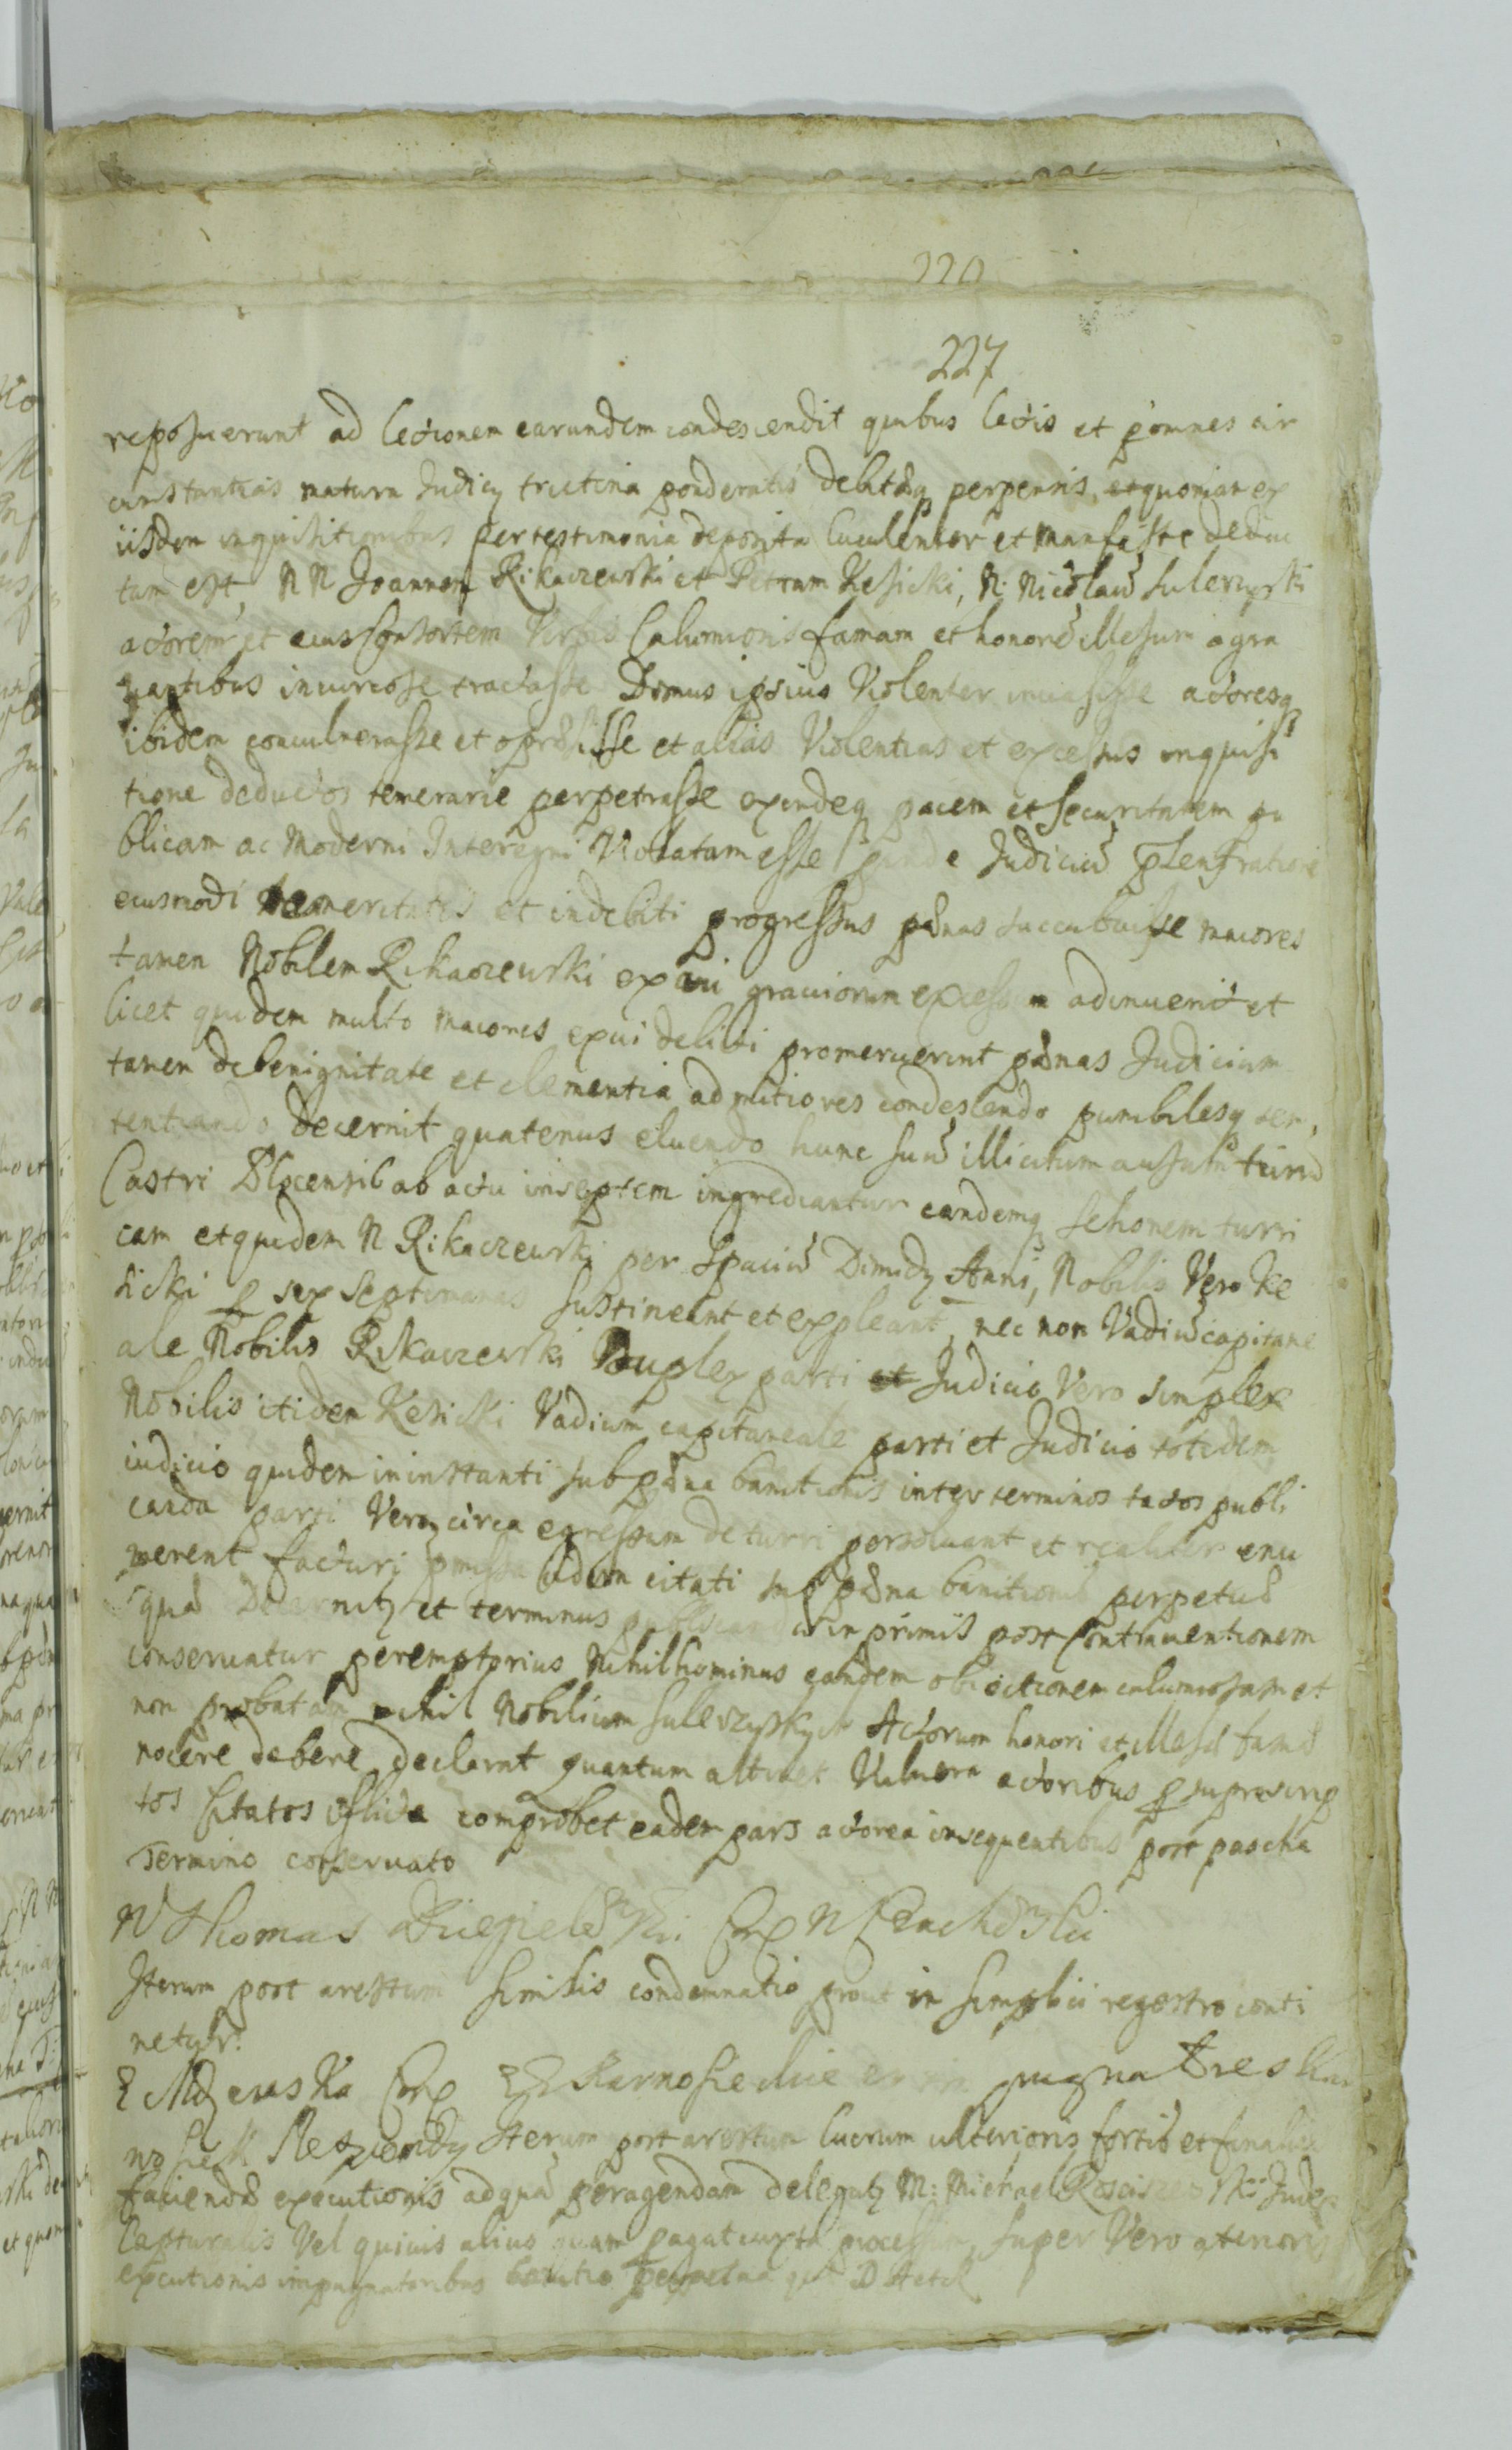 220
227
reposuerunt ad lectionem earundem condescendit quibus lectis et p omnes cir
cumstantias matura Judicy trutina ponderatis debitaq perpensis, et quoniam ex
iisdem inquisitionibus per testimonia deposita luculenter et manifeste deduc
tum est, N N Joannem Rikaczewski et Petrum Kesicki, N: Nicolaū Suleczyski
actorem et eius consortem Verbis Calumniosis famam et honorē illesum agra
uantibus iniuriose tractasse Domus ipsius Violenter inuasisse actoresq
ibidem conuulnerasse et oppressisse et alias Violentias et excessus inquisi
tione deductos temerarie perpetrasse exindeq pacem et securitatem pu
blicam ac Moderni Interegni Violatam esse Judiciū
eiusmodi temeritatis et indebiti progressus pęnas succubuisse maiores
tamen Nobilem Rikaczewski ex vi grauiorum excessum adinuenit et
licet quidem multo maiores ex vi delicti promeruerint pęnas Judicium
tamen de benignitate et clementia ad mitiores condescendo punibilesq sen
tentiando decernit quatenus eluendo hunc suū illicitum ausum turrī
Castri Plocensis ab actu in septem ingrediantur eandemq sessionem turri
cam et quidem N Rikaczewski per Spaciū Dimidy Anni, Nobilis Vero Ke
sicki p sex septimanas sustineant et expleant, nec non Vadiū capitane
ale Nobilis Rikaczewski Duplex parti et Judicio Vero simplex
Nobilis itidem Kesicki Vadium capitaneale parti et Judicio totidem
iudicio quidem in instanti sub pęna banitionis inter terminos tactos publi
canda parti Vero circa egressum de turri persoluant et realiter enu
merent facturi pmissa iidem citati sub pęna banitionis perpetuę
quā Decernit et terminus in primis post Contrauentionem
conseruatur peremptorius Nihilhominus eandem obiectionem calumniosam et
non probatam nihil Nobilium Suleczyskych Actorum honori et illesę famę
nocere debere declarat quantum attinet Vulnera actoribus p suprascrip
tos Citatos illicta comprobet eadem pars actorea insequentibus post pascha
Termino conseruato
N Thomas Cop N
Iterum post arestum similis condemnatio prout in simplici regestro conti
netur.
Cop pugna tres Kar
Iterum post arestum lucrum ulterioris fortis et finalis
faciendę executionis ad quā peragendam delegat M: Michael Judex
Capturalis Vel quiuis alius quam pagat iuxta processum, super Vero atinoris
executionis impugnatoribus banitio perpetua